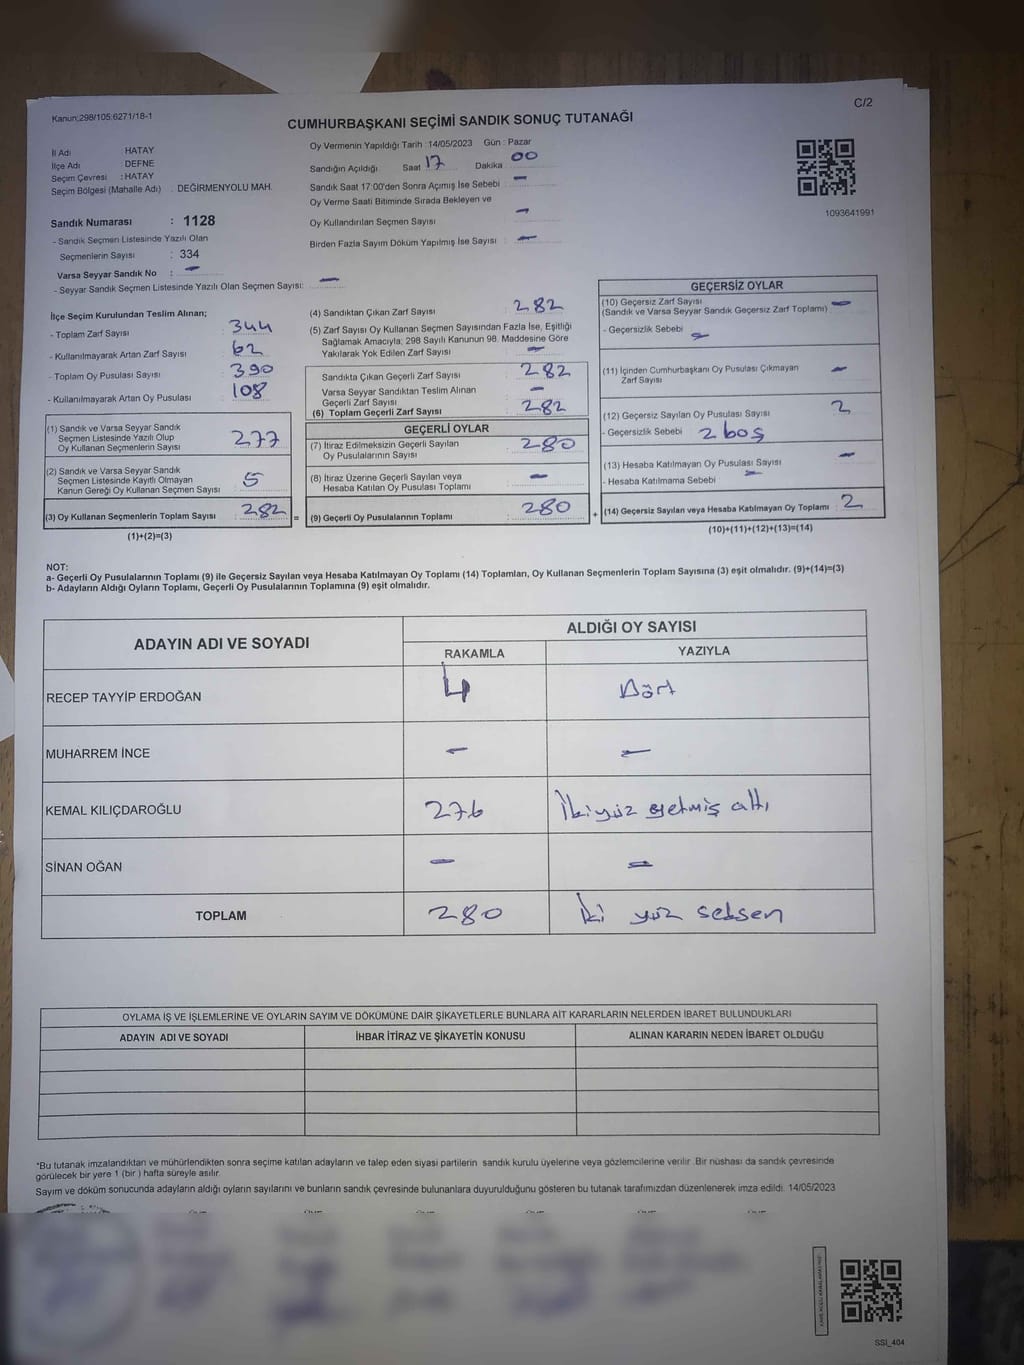 Kanun;298/105;6271/18-1
C/2
CUMHURBAŞKANI SEÇİMİ SANDIK SONUÇ TUTANAĞI
İl Adı : HATAY
İlçe Adı : DEFNE
Seçim Çevresi : HATAY
Seçim Bölgesi (Mahalle Adı) : DEĞİRMENYOLU MAH.
Sandık Numarası : 1128
- Sandık Seçmen Listesinde Yazılı Olan
Seçmenlerin Sayısı : 334
Varsa Seyyar Sandık No : -
- Seyyar Sandık Seçmen Listesinde Yazılı Olan Seçmen Sayısı: -
Oy Vermenin Yapıldığı Tarih : 14/05/2023 Gün : Pazar
Sandığın Açıldığı Saat 17 Dakika 00
Sandık Saat 17:00'den Sonra Açımış İse Sebebi : -
Oy Verme Saati Bitiminde Sırada Bekleyen ve
Oy Kullandırılan Seçmen Sayısı : -
Birden Fazla Sayım Döküm Yapılmış İse Sayısı : -
1093641991
İlçe Seçim Kurulundan Teslim Alınan;
- Toplam Zarf Sayısı : 344
- Kullanılmayarak Artan Zarf Sayısı : 62
- Toplam Oy Pusulası Sayısı : 390
- Kullanılmayarak Artan Oy Pusulası : 108
(1) Sandık ve Varsa Seyyar Sandık
Seçmen Listesinde Yazılı Olup
Oy Kullanan Seçmenlerin Sayısı : 277
(2) Sandık ve Varsa Seyyar Sandık
Seçmen Listesinde Kayıtlı Olmayan
Kanun Gereği Oy Kullanan Seçmen Sayısı : 5
(3) Oy Kullanan Seçmenlerin Toplam Sayısı : 282 =
(1)+(2)=(3)
(4) Sandıktan Çıkan Zarf Sayısı : 282
(5) Zarf Sayısı Oy Kullanan Seçmen Sayısından Fazla İse, Eşitliği
Sağlamak Amacıyla; 298 Sayılı Kanunun 98. Maddesine Göre
Yakılarak Yok Edilen Zarf Sayısı : -
Sandıkta Çıkan Geçerli Zarf Sayısı : 282
Varsa Seyyar Sandıktan Teslim Alınan
Geçerli Zarf Sayısı : -
(6) Toplam Geçerli Zarf Sayısı : 282
GEÇERLİ OYLAR
(7) İtiraz Edilmeksizin Geçerli Sayılan
Oy Pusulalarının Sayısı : 280
(8) İtiraz Üzerine Geçerli Sayılan veya
Hesaba Katılan Oy Pusulası Toplamı : -
(9) Geçerli Oy Pusulalarının Toplamı : 280 +
GEÇERSİZ OYLAR
(10) Geçersiz Zarf Sayısı
(Sandık ve Varsa Seyyar Sandık Geçersiz Zarf Toplamı) : -
- Geçersizlik Sebebi : -
(11) İçinden Cumhurbaşkanı Oy Pusulası Çıkmayan
Zarf Sayısı : -
(12) Geçersiz Sayılan Oy Pusulası Sayısı : 2
- Geçersizlik Sebebi : 2 boş
(13) Hesaba Katılmayan Oy Pusulası Sayısı : -
- Hesaba Katılmama Sebebi : -
(14) Geçersiz Sayılan veya Hesaba Katılmayan Oy Toplamı : 2
(10)+(11)+(12)+(13)=(14)
NOT:
a- Geçerli Oy Pusulalarının Toplamı (9) ile Geçersiz Sayılan veya Hesaba Katılmayan Oy Toplamı (14) Toplamları, Oy Kullanan Seçmenlerin Toplam Sayısına (3) eşit olmalıdır. (9)+(14)=(3)
b- Adayların Aldığı Oyların Toplamı, Geçerli Oy Pusulalarının Toplamına (9) eşit olmalıdır.
ADAYIN ADI VE SOYADI
ALDIĞI OY SAYISI
RAKAMLA YAZIYLA
RECEP TAYYİP ERDOĞAN 4 Dört
MUHARREM İNCE - -
KEMAL KILIÇDAROĞLU 276 İkiyüz yetmiş altı
SİNAN OĞAN - -
TOPLAM 280 İki yüz seksen
OYLAMA İŞ VE İŞLEMLERİNE VE OYLARIN SAYIM VE DÖKÜMÜNE DAİR ŞİKAYETLERLE BUNLARA AİT KARARLARIN NELERDEN İBARET BULUNDUKLARI
ADAYIN ADI VE SOYADI İHBAR İTİRAZ VE ŞİKAYETİN KONUSU ALINAN KARARIN NEDEN İBARET OLDUĞU
*Bu tutanak imzalandıktan ve mühürlendikten sonra seçime katılan adayların ve talep eden siyasi partilerin sandık kurulu üyelerine veya gözlemcilerine verilir. Bir nüshası da sandık çevresinde
görülecek bir yere 1 (bir ) hafta süreyle asılır.
Sayım ve döküm sonucunda adayların aldığı oyların sayılarını ve bunların sandık çevresinde bulunanlara duyurulduğunu gösteren bu tutanak tarafımızdan düzenlenerek imza edildi. 14/05/2023
SSİ_404